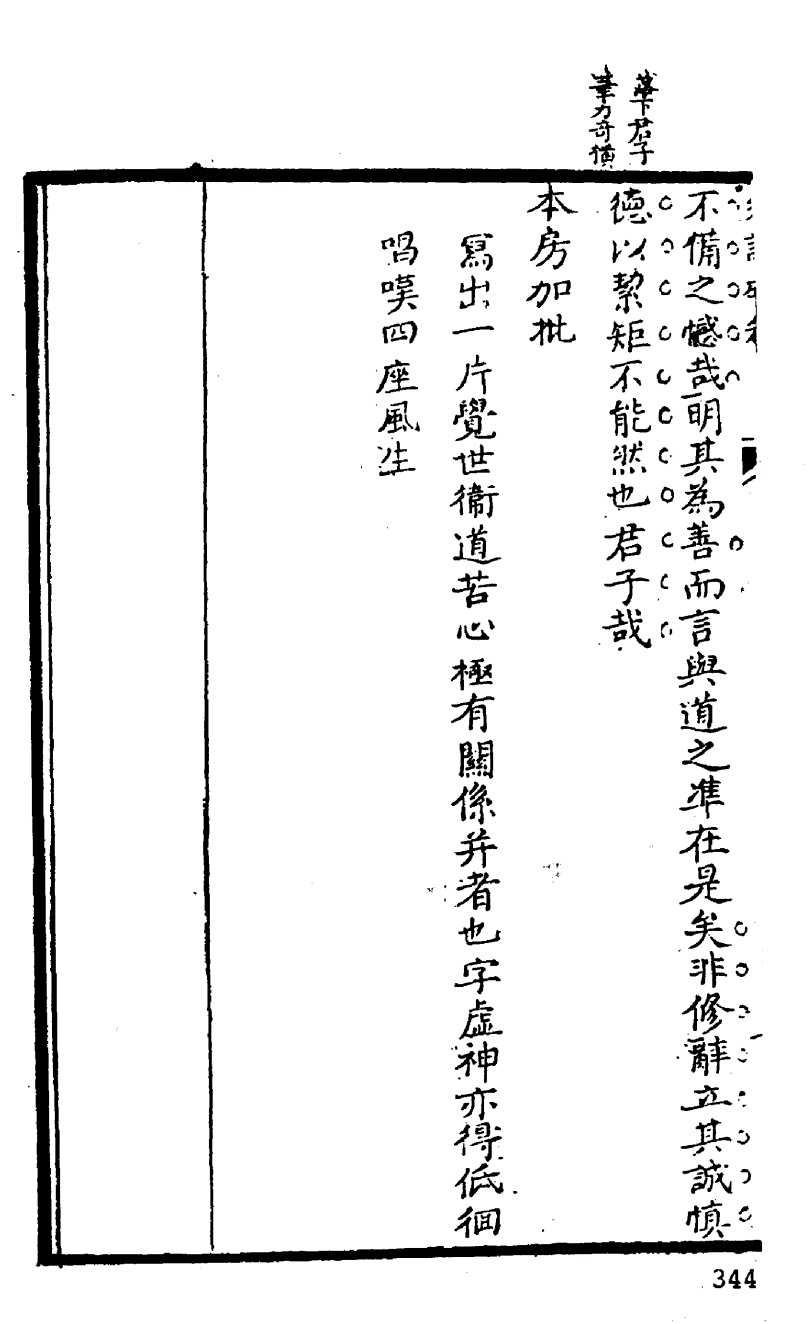 落下君子
筆力奇橫
不備之憾哉明其為善而言與道之準在是矣非修辭立其誠慎
德以絜矩不能然也君子哉
本房加批
寫出一片覺世衞道苦心極有關係并者也字虛神亦得低徊
唱嘆四座風生
344